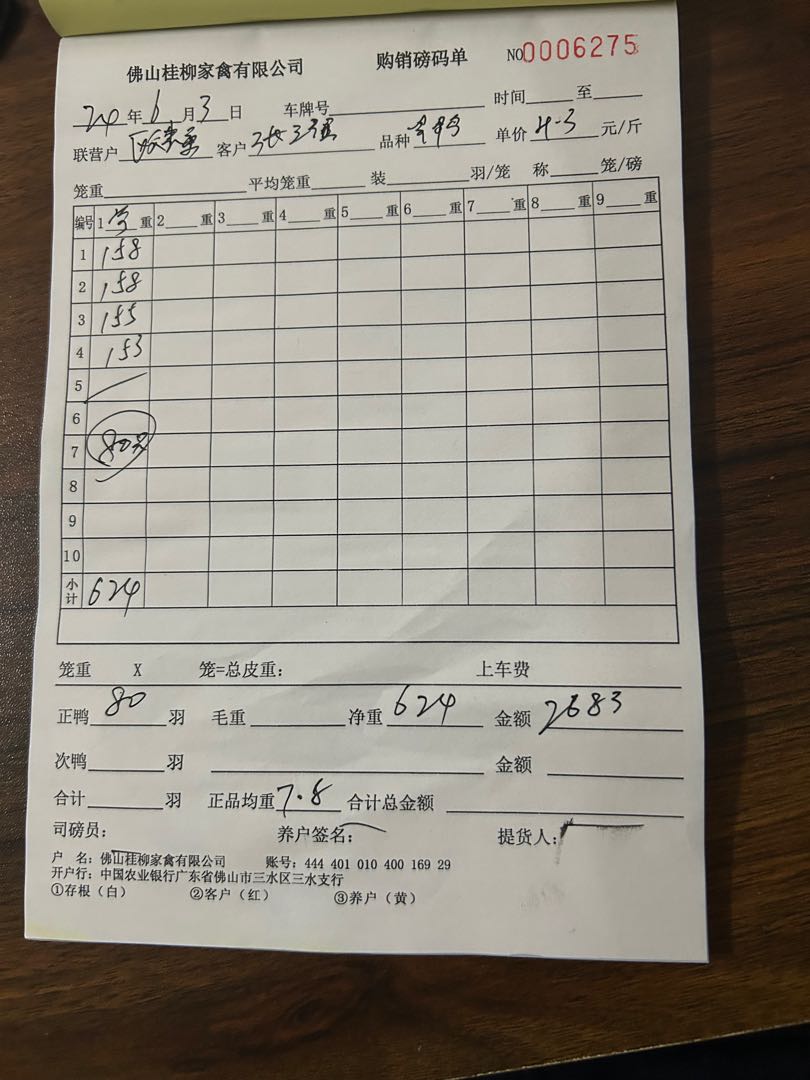 佛山桂柳家禽有限公司 购销磅码单 NO0006275
24年6月3日 车牌号 时间 至
联营户 客户 品种 单价 4-3 元/斤
笼重 平均笼重 装 羽/笼 称 笼/磅
编号 1 重 2 重 3 重 4 重 5 重 6 重 7 重 8 重 9 重
1 158
2 158
3 155
4 153
5
6
7 80只
8
9
10
小计 624
笼重 X 笼=总皮重: 上车费
正鸭 80 羽 毛重 净重 624 金额 2683
次鸭 羽 金额
合计 羽 正品均重 7.8 合计总金额
司磅员: 养户签名: 提货人:
户 名: 佛山桂柳家禽有限公司 账号: 444 401 010 400 169 29
开户行: 中国农业银行广东省佛山市三水区三水支行
①存根（白） ②客户（红） ③养户（黄）